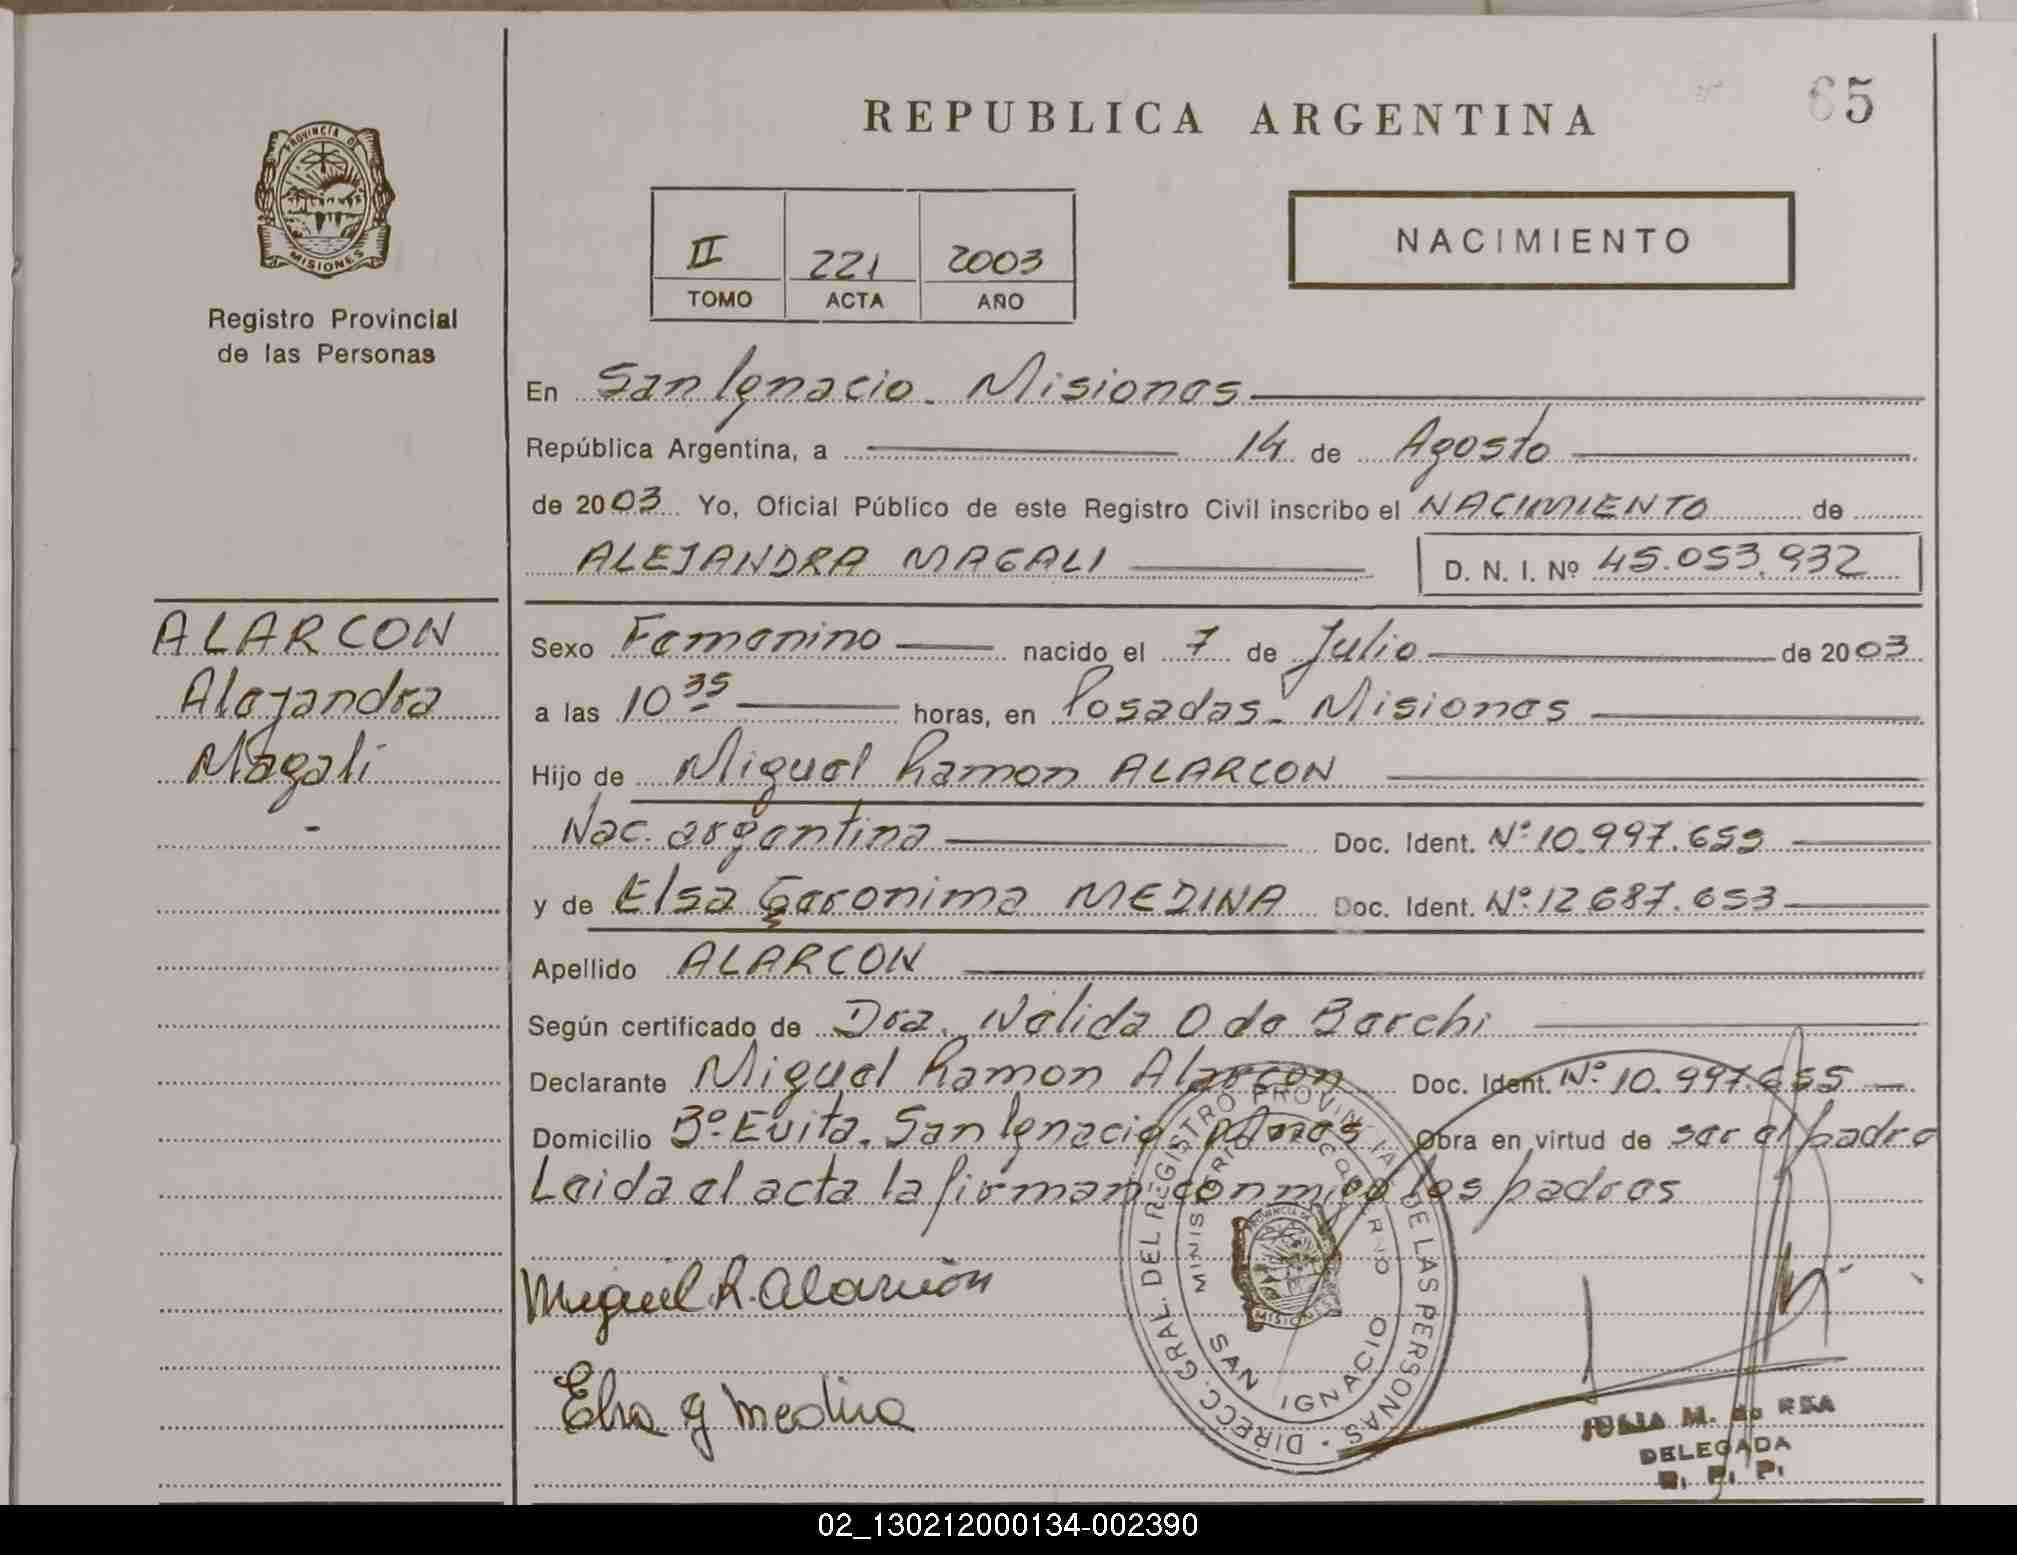 65
REPUBLICA ARGENTINA
PROVINCIA DE
MISIONES
Registro Provincial
de las Personas
II 221 2003
TOMO ACTA AÑO
NACIMIENTO
En San Ignacio. Misiones
República Argentina, a 14 de Agosto
de 2003 Yo, Oficial Público de este Registro Civil inscribo el NACIMIENTO de
ALEJANDRA MAGALI D. N. I. Nº 45.053.932
ALARCON
Alejandra
Magali
Sexo Femenino nacido el 7 de Julio de 2003
a las 10 35 horas, en Posadas. Misiones
Hijo de Miguel Ramon ALARCON
Nac. argentina Doc. Ident. Nº 10.997.655
y de Elsa Geronima MEDINA Doc. Ident. Nº 12.687.653
Apellido ALARCON
Según certificado de Dra. Nelida O de Barchi
Declarante Miguel Ramon Alarcon Doc. Ident. Nº 10.997.655
Domicilio Bº Evita. San Ignacio Mnes Obra en virtud de ser el padre
Leida el acta la firman conmigo los padres
Miguel R. Alarcón
Elsa G Medina
DIRECC. GRAL. DEL REGISTRO PROVINCIAL DE LAS PERSONAS
MINISTERIO GOBIERNO
SAN IGNACIO
JULIA M. de REA
DELEGADA
R. P. P.
02_130212000134-002390